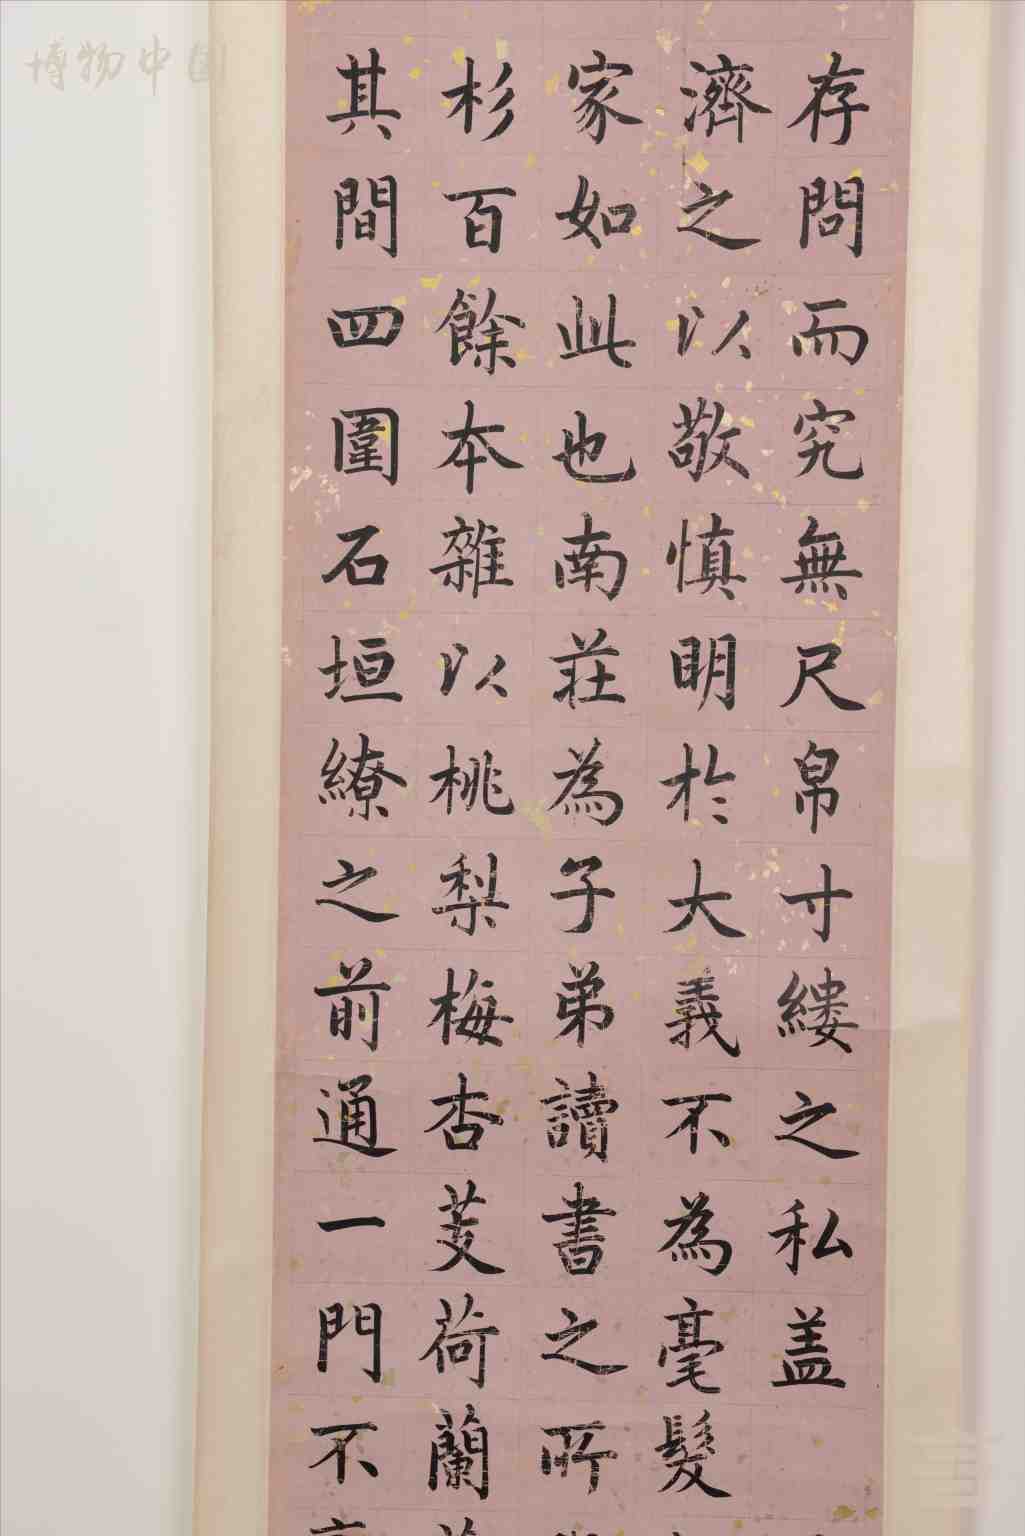 存問而究無尺帛寸縷之私盖
濟之以敬慎明於大義不為毫髮
家如此也南莊為子弟讀書之所
杉百餘本雜以桃梨梅杏芰荷蘭
其間四圍石垣繚之前通一門不
博物中国